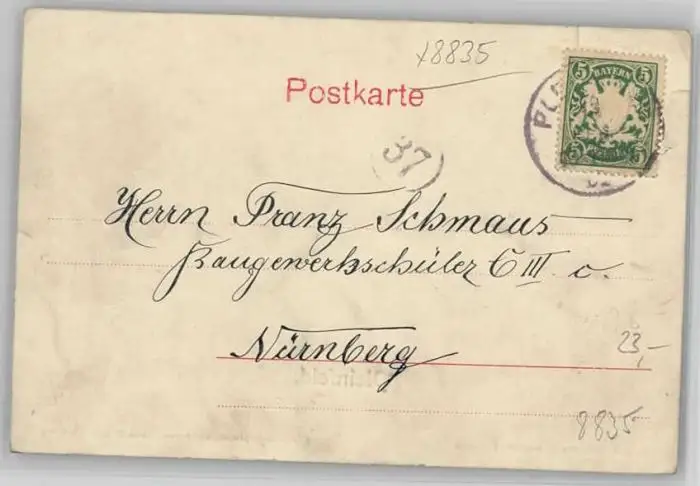 x8835
Postkarte
5 BAYERN 5
5 5
37
Herrn Franz Schmaus
Baugewerkschüler C III c.
Nürnberg
23,-
8835